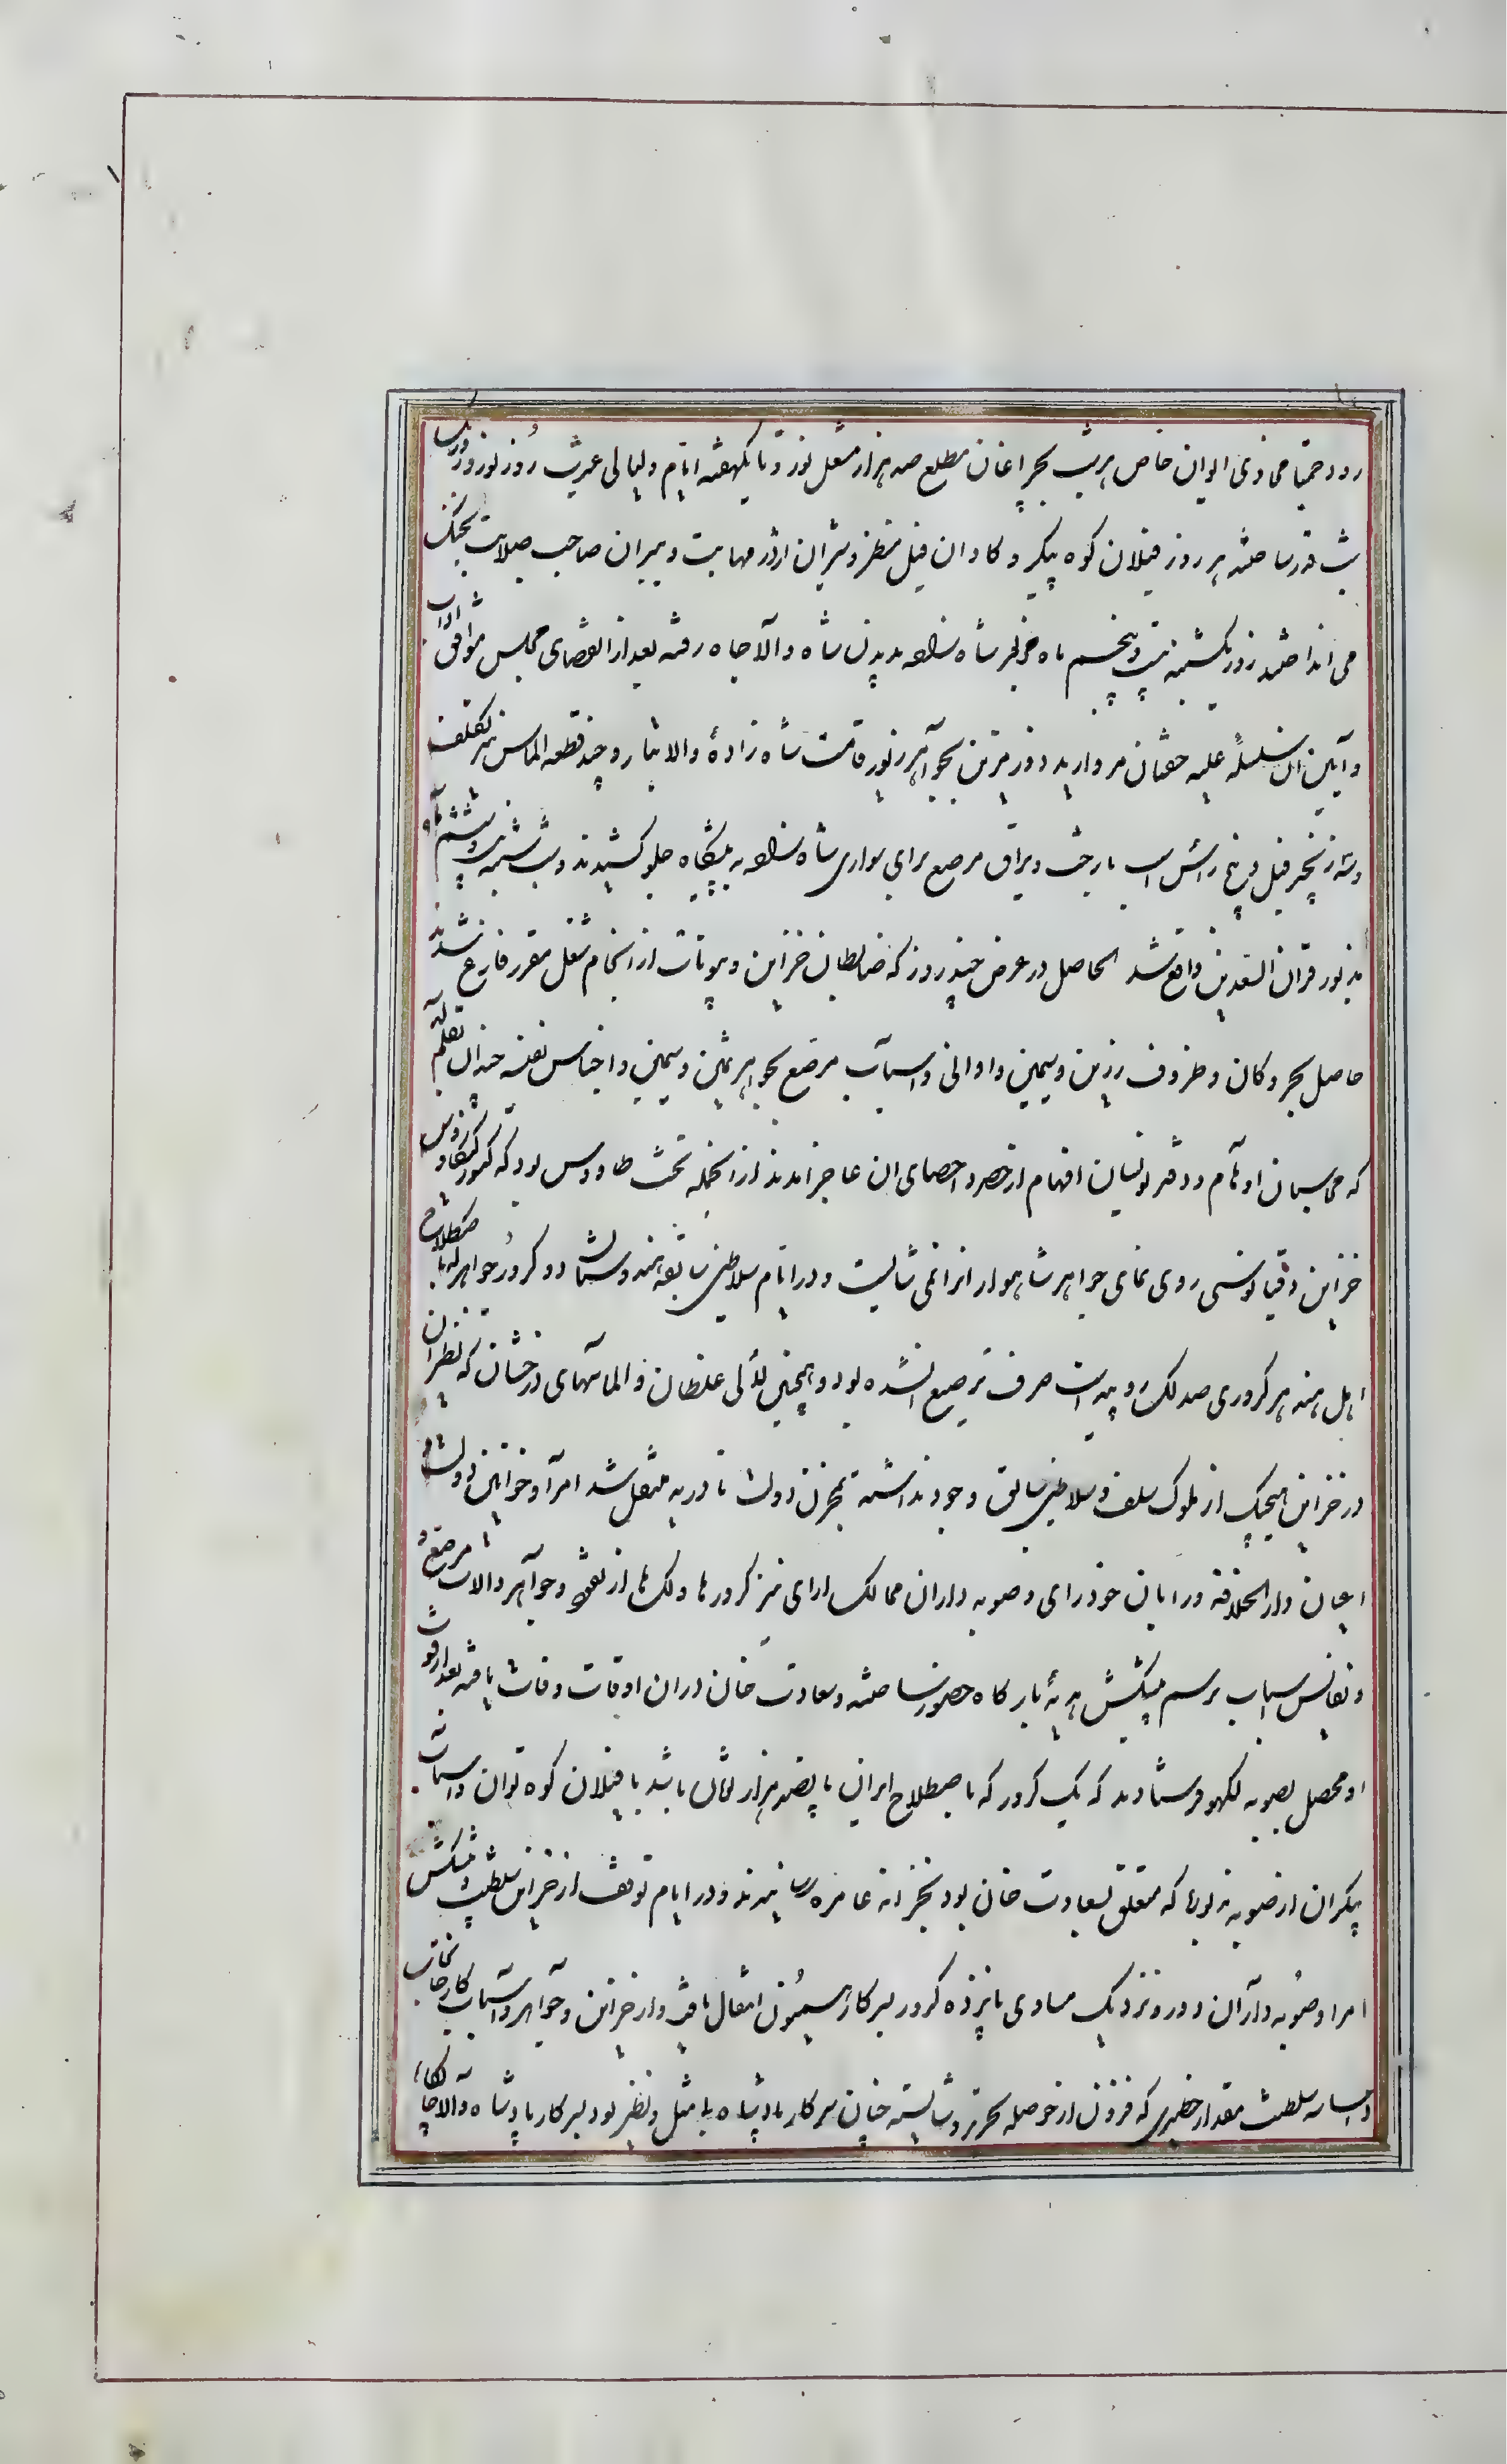 رود جمنا محاذی ایوان خاص هر شب بچراغان مطلع صد هزار مشعل نور و تا یکهفته ایام و لیالی عشرت روز نوروز و زینت
شب قدر ساخته هر روز فیلان کوه پیکر و کاوان فیل منظر و شیران اژدر مهابت و ببران صاحب صلابت بجنک
می انداختند روز یکشنبه بیست و پنجم ماه مزبور شاه زاده بدیدن شاه والا جاه رفته بعد از انقضای مجلس موافق آداب
و آیین ان سلسله علیه خفتان مروارید دوز مزین بجواهر زیور قامت شاه زاده والا تبار و چند قطعه الماس نیز تکلف
و سه زنجیر فیل و پنج راس اسب با رخت و یراق مرصع برای سواری شاه زاده به پیشگاه جلو کشیدند و شب شنبه بیست و ششم ماه
مزبور قران السعدین واقع شد الحاصل در عرض چند روز که ضابطان خزاین و بیوتات از انجام شغل مقرر فارغ شدند
حاصل بحر و کان و ظروف زرین و سیمین و اوانی و اسباب مرصع بجواهر ثمین و سیمین و اجناس نفیسه چندان بقلم آمد
که محاسبان اوهام و دفتر نویسان افهام از حصر و احصای ان عاجز امدند از انجمله تخت طاووس بود که کنوز کیکاوس
خزاین دقیانوسی روی نمای جواهر شاهوار انرا نمی شایست و در ایام سلاطین سابقه هندوستان دو کرور جواهر که باصطلاح
اهل هند هر کروری صد لک روپیه است صرف ترصیع ان شده بود و همچنین لآلی غلطان و الماسهای درخشان که نظیر ان
در خزاین هیچیک از ملوک سلف و سلاطین سابق وجود نداشته بمخزن دولت نادریه منتقل شد امرا و خوانین دولت
اعیان دار الخلافه و رایان خود رای و صوبه داران ممالک ارای نیز کرورها و لکها از نقود و جواهر و الات مرصع و
و نفایس اسباب برسم پیشکش هدیه بارگاه حضور ساخته و سعادت خان دران اوقات وفات یافته بعد از فوت
او محصل بصوبه لکهو فرستادند که یک کرور که باصطلاح ایران پانصد هزار تومان باشد با فیلان کوه توان و اسبان
پیکران از صوبه مزبوره که متعلق بسعادت خان بود بخزانه عامره رسانیدند و در ایام توقف از خزاین سلطنت و پیشکش
امرا و صوبه داران دور و نزدیک مساوی پانزده کرور بسرکار همیون انتقال یافت و از خزاین و جواهر و اسباب کارخانجات
و اساسه سلطنت مقدار خطیری که فزون از حوصله تحریر و شایسته چنان سرکار پادشاه بی مثل و نظیر بود بسرکار پادشاه والا جاه